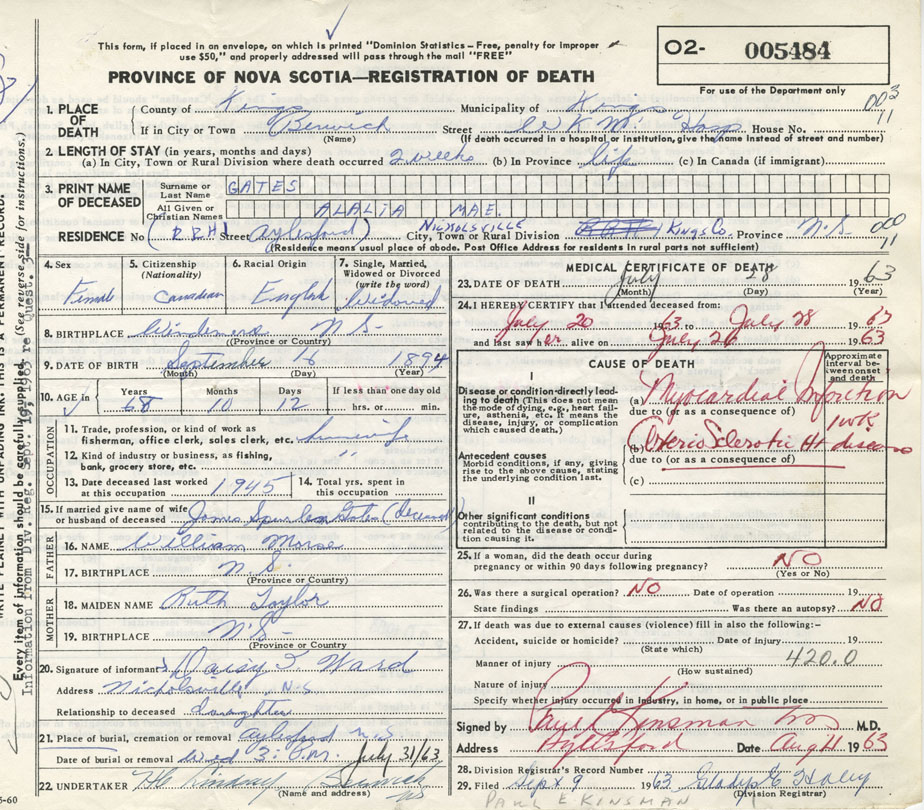 This form, if placed in an envelope, on which is printed "Dominion Statistics – Free, penalty for improper
use $50," and properly addressed will pass through the mail "FREE"
PROVINCE OF NOVA SCOTIA—REGISTRATION OF DEATH
O2- 005484
For use of the Department only
003
11
1. PLACE OF DEATH County of Kings Municipality of Kings
If in City or Town Berwick Street W K M Hosp House No.
(Name) (If death occurred in a hospital or institution, give the name instead of street and number)
2. LENGTH OF STAY (in years, months and days)
(a) In City, Town or Rural Division where death occurred 2 weeks (b) In Province life (c) In Canada (if immigrant)
3. PRINT NAME OF DECEASED Surname or Last Name GATES
All Given or Christian Names ALALIA MAE.
RESIDENCE No (RRH1 Street Aylesford) NICHOLSVILLE City, Town or Rural Division Kings Co Province N.S- 000
11
(Residence means usual place of abode. Post Office Address for residents in rural parts not sufficient)
4. Sex Female
5. Citizenship (Nationality) Canadian
6. Racial Origin English
7. Single, Married, Widowed or Divorced (write the word) Widowed
8. BIRTHPLACE Windermere N S-
(Province or Country)
9. DATE OF BIRTH September 16 1894
(Month) (Day) (Year)
10. AGE in Years 68 Months 10 Days 12 If less than one day old hrs. or min.
OCCUPATION
11. Trade, profession, or kind of work as
fisherman, office clerk, sales clerk, etc. housewife
12. Kind of industry or business, as fishing,
bank, grocery store, etc. "
13. Date deceased last worked at this occupation 1945 14. Total yrs. spent in this occupation
15. If married give name of wife or husband of deceased James Spurden Gates (deceased)
FATHER
16. NAME William Morse
17. BIRTHPLACE N.S.
(Province or Country)
MOTHER
18. MAIDEN NAME Ruth Taylor
19. BIRTHPLACE N.S-
(Province or Country)
20. Signature of informant Daisy I Ward
Address Nicholsville, N.S
Relationship to deceased Daughter
21. Place of burial, cremation or removal Aylesford N.S
Date of burial or removal Wed 3: P.M. July 31/63
22. UNDERTAKER H C Lindsay Berwick NS
(Name and address)
MEDICAL CERTIFICATE OF DEATH
23. DATE OF DEATH July 28 1963
(Month) (Day) (Year)
24. I HEREBY CERTIFY that I attended deceased from:
July 20 1963 to July 28 1963
and last saw her alive on July 26 1963
CAUSE OF DEATH
Approximate interval between onset and death
I
Disease or condition directly leading to death (This does not mean the mode of dying, e.g., heart failure, asthenia, etc. It means the disease, injury, or complication which caused death.)
(a) Myocardial Infarction
due to (or as a consequence of) 1 WK
Antecedent causes
Morbid conditions, if any, giving rise to the above cause, stating the underlying condition last.
(b) Arterio Sclerotic Ht disease
due to (or as a consequence of)
(c)
II
Other significant conditions
contributing to the death, but not related to the disease or condition causing it.
25. If a woman, did the death occur during
pregnancy or within 90 days following pregnancy? NO
(Yes or No)
26. Was there a surgical operation? NO Date of operation 19
State findings Was there an autopsy? NO
27. If death was due to external causes (violence) fill in also the following:–
Accident, suicide or homicide? Date of Injury 19
(State which) 420.0
Manner of injury
(How sustained)
Nature of injury
Specify whether injury occurred in industry, in home, or in public place
Signed by Paul E Kinsman MD M.D.
Address Aylesford Date Aug 11 1963
28. Division Registrar's Record Number
29. Filed Sept 9 1963 Gladys E Haley
(Division Registrar)
PAUL E. KINSMAN
5-60
WRITE PLAINLY WITH UNFADING INK: THIS IS A PERMANENT RECORD.
Every item of information should be carefully supplied. (See reverse side for instructions.)